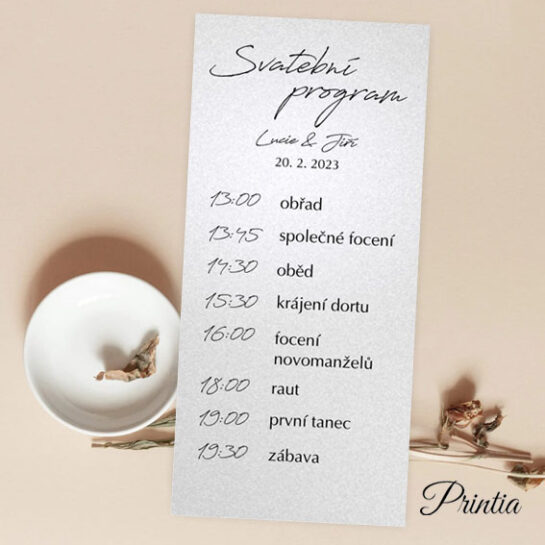 Svatební
program
Lucie & Jiří
20. 2. 2023
13:00 obřad
13:45 společné focení
14:30 oběd
15:30 krájení dortu
16:00 focení
novomanželů
18:00 raut
19:00 první tanec
19:30 zábava
Printia